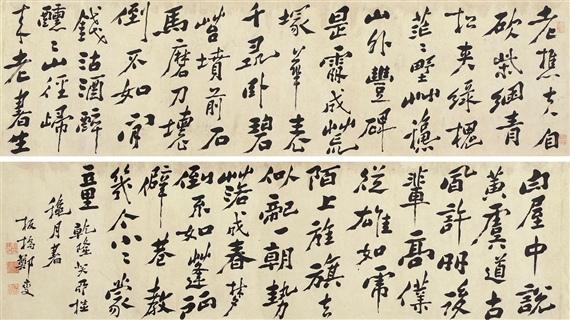 老樵夫自
砍柴綑青
松夾綠槐
茫茫野艸穐
山外豐碑
是處成荒
塚華表
千尋卧碧
苔墳前石
馬磨刀壞
倒不如閒
錢沽酒醉
醺醺山徑歸
来老書生
白屋中說
黃虞道古
風許後
輩高僕
從雄如虎
陌上旌旗去
似龍一朝勢
落成春梦
倒不如蓬门
僻巷教
幾个小小蒙
童 乾隆
穐月書
板橋鄭燮